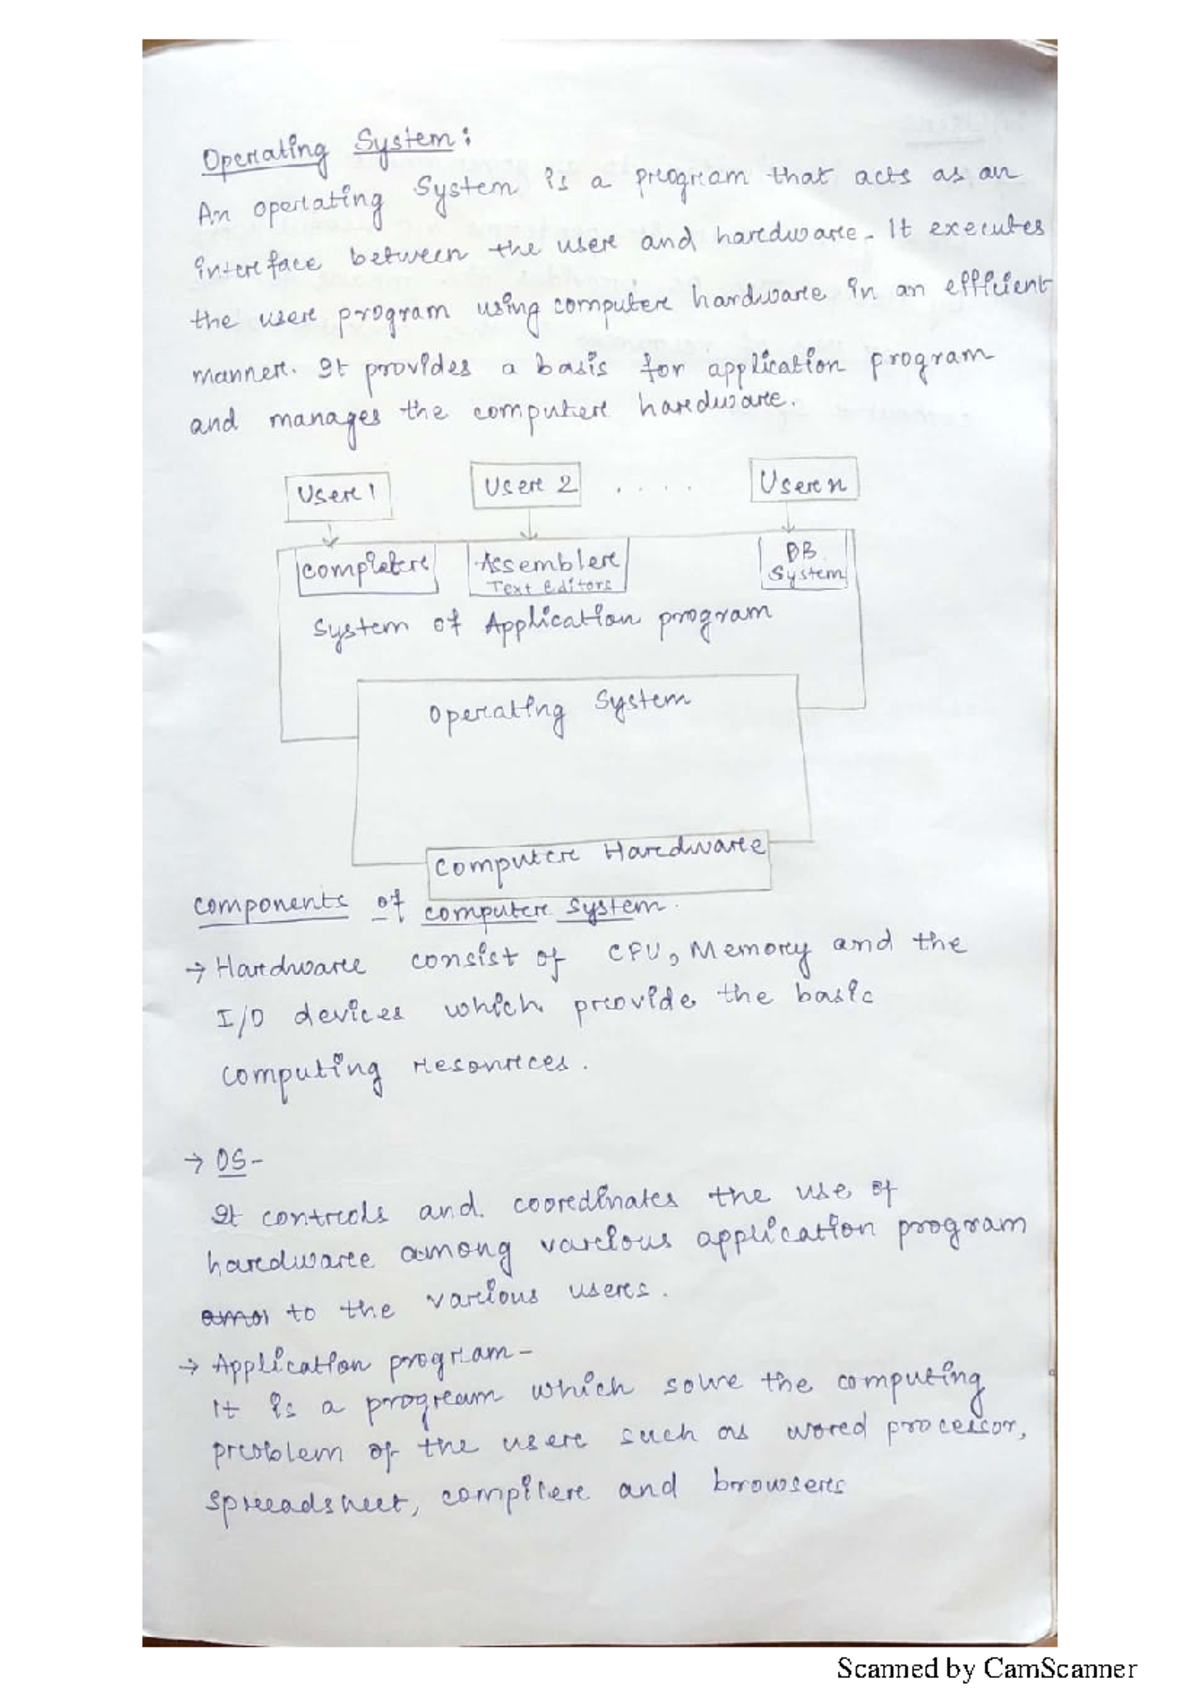 Operating System:
An operating System is a program that acts as an
interface between the user and hardware. It executes
the user program using computer hardware in an efficient
manner. It provides a basis for application program
and manages the computer hardware.
User 1 User 2 . . . . User n
Completer Assembler DB
Text Editors System
System of Application program
Operating System
Computer Hardware
Components of computer system.
→ Hardware consist of CPU, Memory and the
I/O devices which provide the basic
computing resources.
→ OS-
It controls and coordinates the use of
hardware among various application program
to the various users.
→ Application program-
It is a program which solve the computing
problem of the user such as word processor,
spreadsheet, compiler and browsers
Scanned by CamScanner